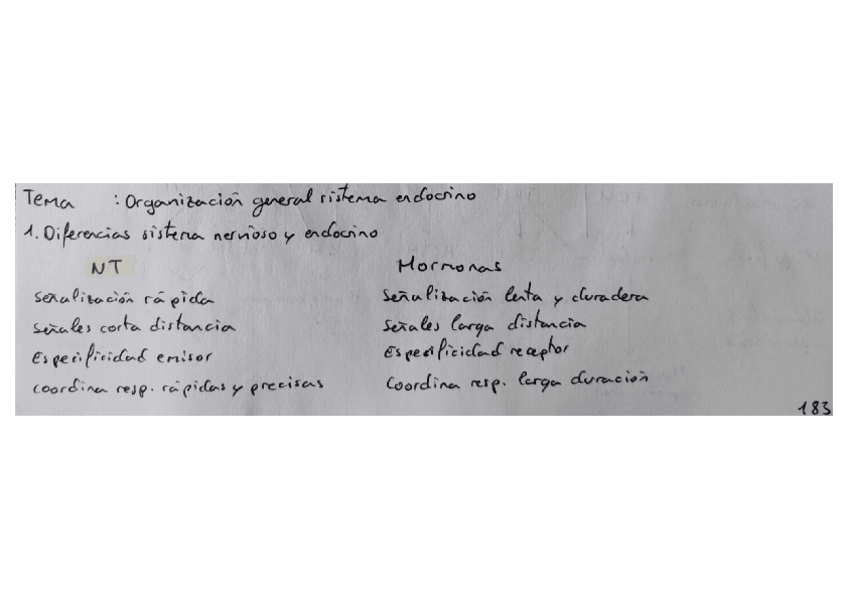 Tema : Organización general sistema endocrino
1. Diferencias sistema nervioso y endocrino
NT Hormonas
Señalización rápida Señalización lenta y duradera
Señales corta distancia Señales larga distancia
Especificidad emisor Especificidad receptor
Coordina resp. rápidas y precisas Coordina resp. larga duración
183